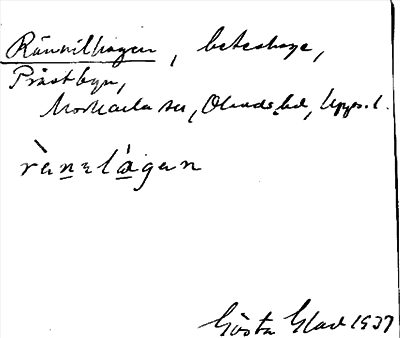 Rännilhagen, beteshage,
Prästbyn,
Morkarla sn, Olands hd, Upps. l.
rànɛlágan
Gösta Glad 1937